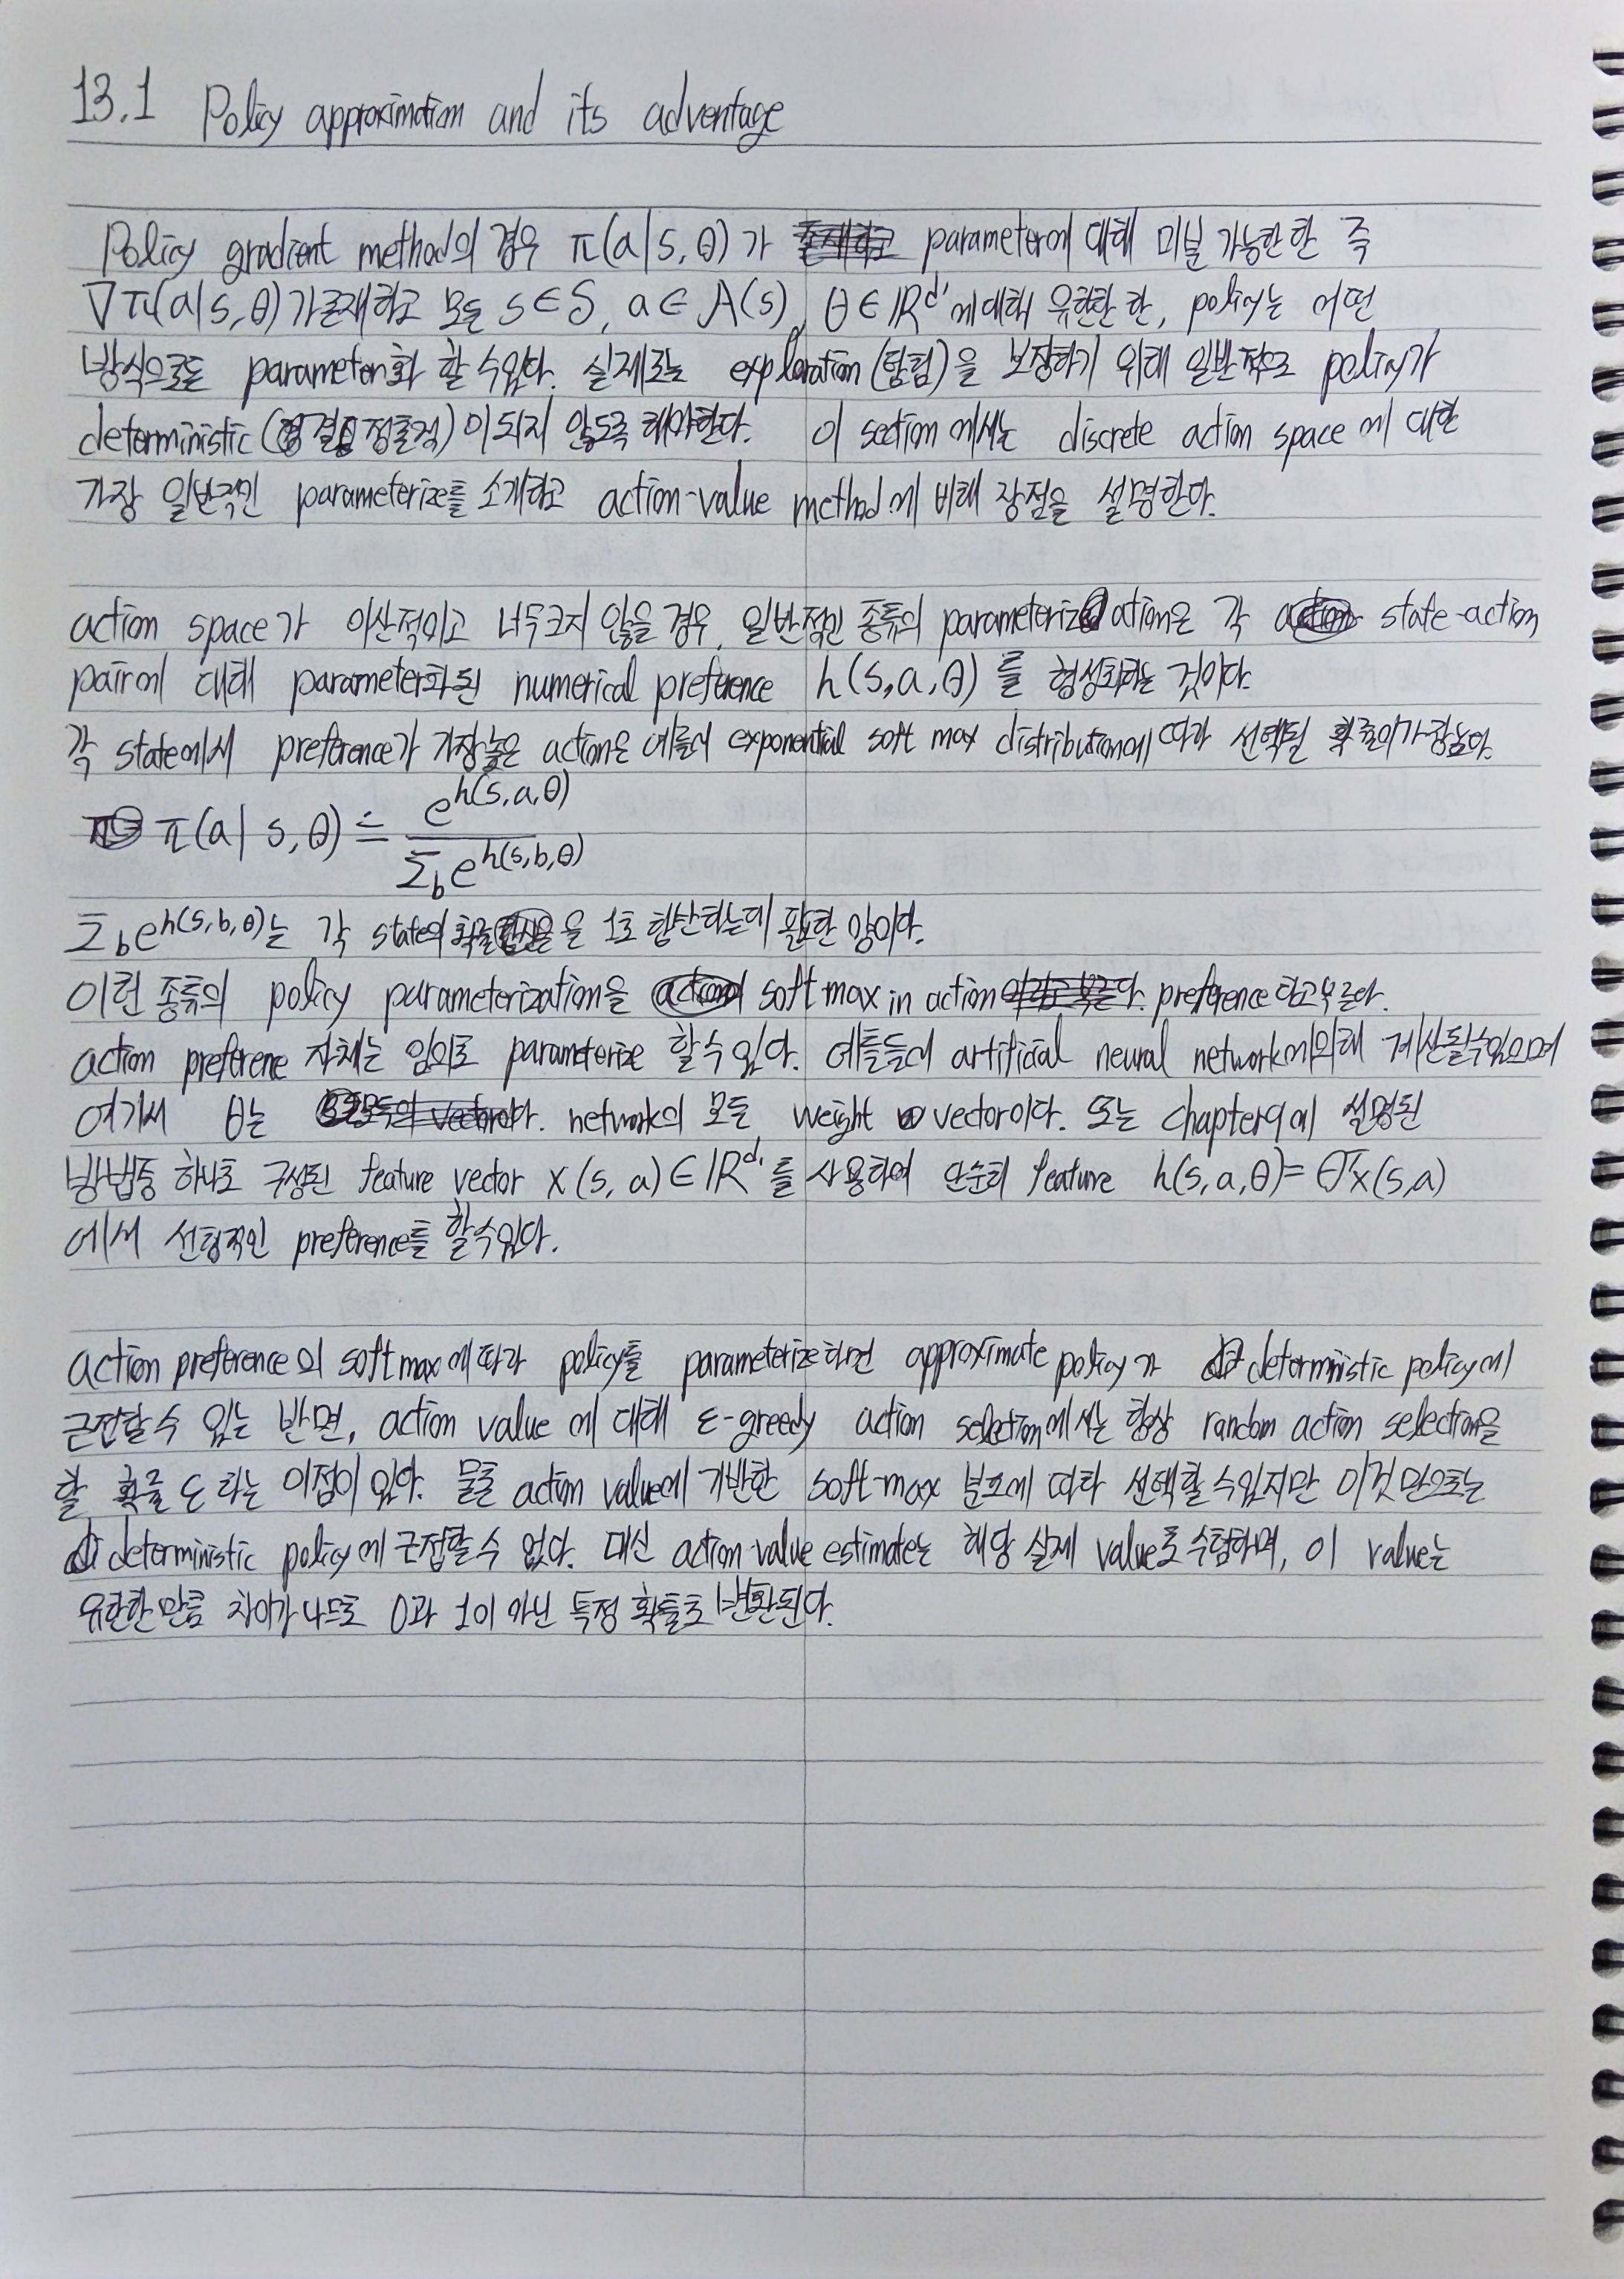 13.1 Policy approximation and its advantage
Policy gradient method의 경우 π(a|s,θ)가 parameter에 대해 미분 가능한 한 즉
∇π(a|s,θ)가 존재하고 모든 s∈S, a∈A(s), θ∈ℝ^d'에 대해 유한한 한, policy는 어떤
방식으로든 parameter화 할 수 있다. 실제로는 exploration(탐험)을 보장하기 위해 일반적으로 policy가
deterministic(결정론적)이 되지 않도록 해야한다. 이 section에서는 discrete action space에 대한
가장 일반적인 parameterize를 소개하고 action-value method에 비해 장점을 설명한다.
action space가 이산적이고 너무 크지 않을 경우, 일반적인 종류의 parameterization은 각 state-action
pair에 대해 parameter화된 numerical preference h(s,a,θ)를 형성화하는 것이다.
각 state에서 preference가 가장 높은 action은 예를들어 exponential soft max distribution에 따라 선택될 확률이 가장 높다.
π(a|s,θ) ≐ e^h(s,a,θ) / Σ_b e^h(s,b,θ)
Σ_b e^h(s,b,θ)는 각 state의 확률을 1로 합산하는데 필요한 양이다.
이런 종류의 policy parameterization을 soft max in action preference라고 부른다.
action preference 자체는 임의로 parameterize 할 수 있다. 예를들어 artificial neural network에 의해 계산될 수 있으며
여기서 θ는 network의 모든 weight vector이다. 또는 chapter 9에 설명된
방법중 하나로 구성된 feature vector x(s,a)∈ℝ^d'를 사용하여 단순히 feature h(s,a,θ)=θ^T x(s,a)
에서 선형적인 preference를 할 수 있다.
action preference의 soft max에 따라 policy를 parameterize하면 approximate policy가 deterministic policy에
근접할 수 있는 반면, action value에 대해 ε-greedy action selection에서는 항상 random action selection을
할 확률 ε라는 이점이 있다. 물론 action value에 기반한 soft-max 분포에 따라 선택할 수 있지만 이것 만으로는
deterministic policy에 근접할 수 없다. 대신 action-value estimate는 해당 실제 value로 수렴하며, 이 value는
유한한 만큼 차이가 나므로 0과 1이 아닌 특정 확률로 변환된다.